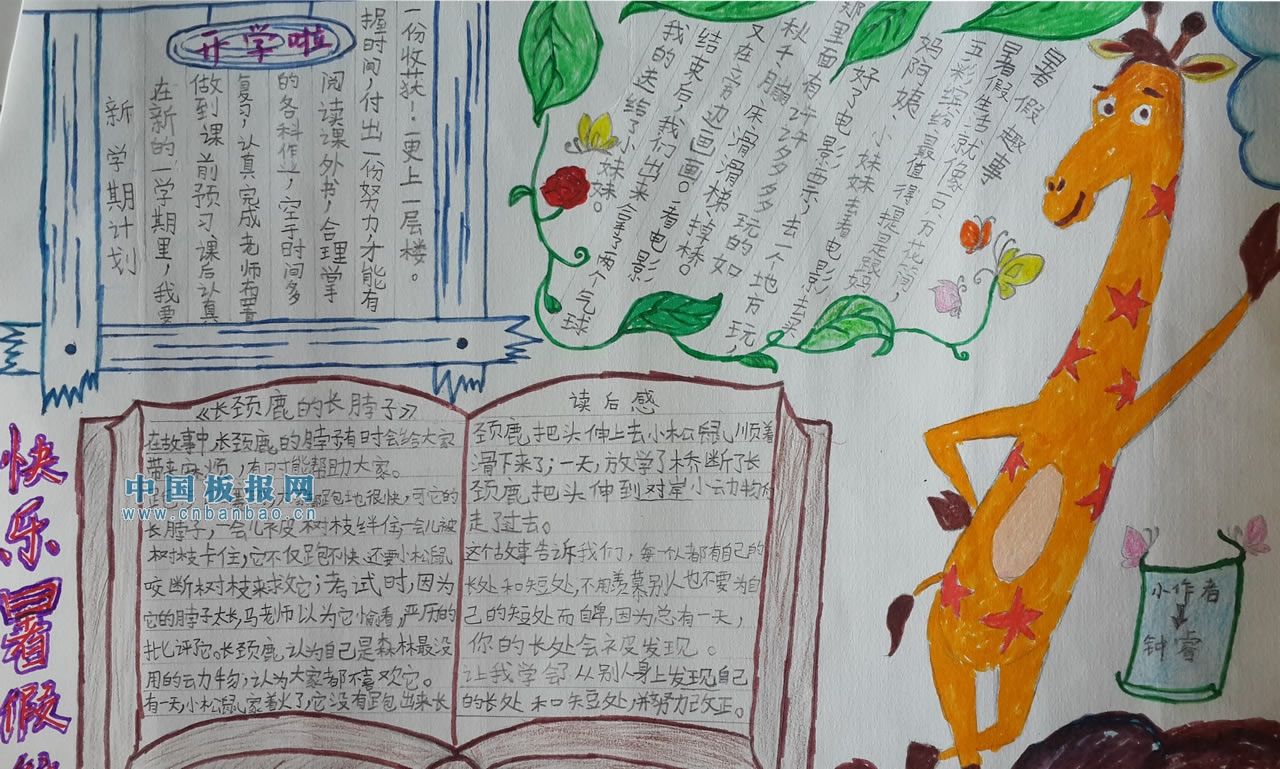 快乐暑假
开学啦
新学期计划
在新的一学期里，我要
做到课前预习，课后认真
复习，认真完成老师布置
的各科作业，空于时间多
阅读课外书，合理掌
握时间，付出一份努力，才能有
一份收获！更上一层楼。
暑假趣事
暑假生活就像百万花筒，
五彩缤纷最值得提是跟妈
妈阿姨、小妹妹去看电影去来
好了电影票，去一个地方玩，
那里面有许许多多玩的如
秋千、蹦床、滑滑梯、掉桥。
又在旁边画画。看电影
结束后，我们出来拿了两个气球
我的送给了小妹妹。
《长颈鹿的长脖子》
在故事中，长颈鹿的脖子有时会给大家
带来麻烦，有时能帮助大家。
跑得很快，可它的
长脖子，一会儿被树枝绊住一会儿被
树枝卡住，它不仅跑不快还要小松鼠
咬断树枝来救它；考试时，因为
它的脖子太长，马老师以为它偷看，严历的
批评它。长颈鹿认为自己是森林最没
用的动物，认为大家都不喜欢它。
有一天小松鼠家着火了，它没有跑出来长
读后感
颈鹿把头伸上去小松鼠顺着
滑下来了；一天，放学了桥断了长
颈鹿把头伸到对岸小动物们
走了过去。
这个故事告诉我们，每一个都有自己的
长处和短处，不用羡慕别人也不要为自
己的短处而自卑，因为总有一天，
你的长处会被发现。
让我学会了从别人身上发现自己
的长处和短处，并努力改正。
小作者
钟睿
中国板报网
www.cnbanbao.cn